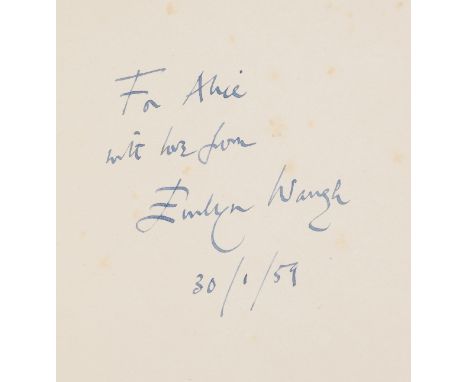 For Alice
with love from
Evelyn Waugh
30/1/59